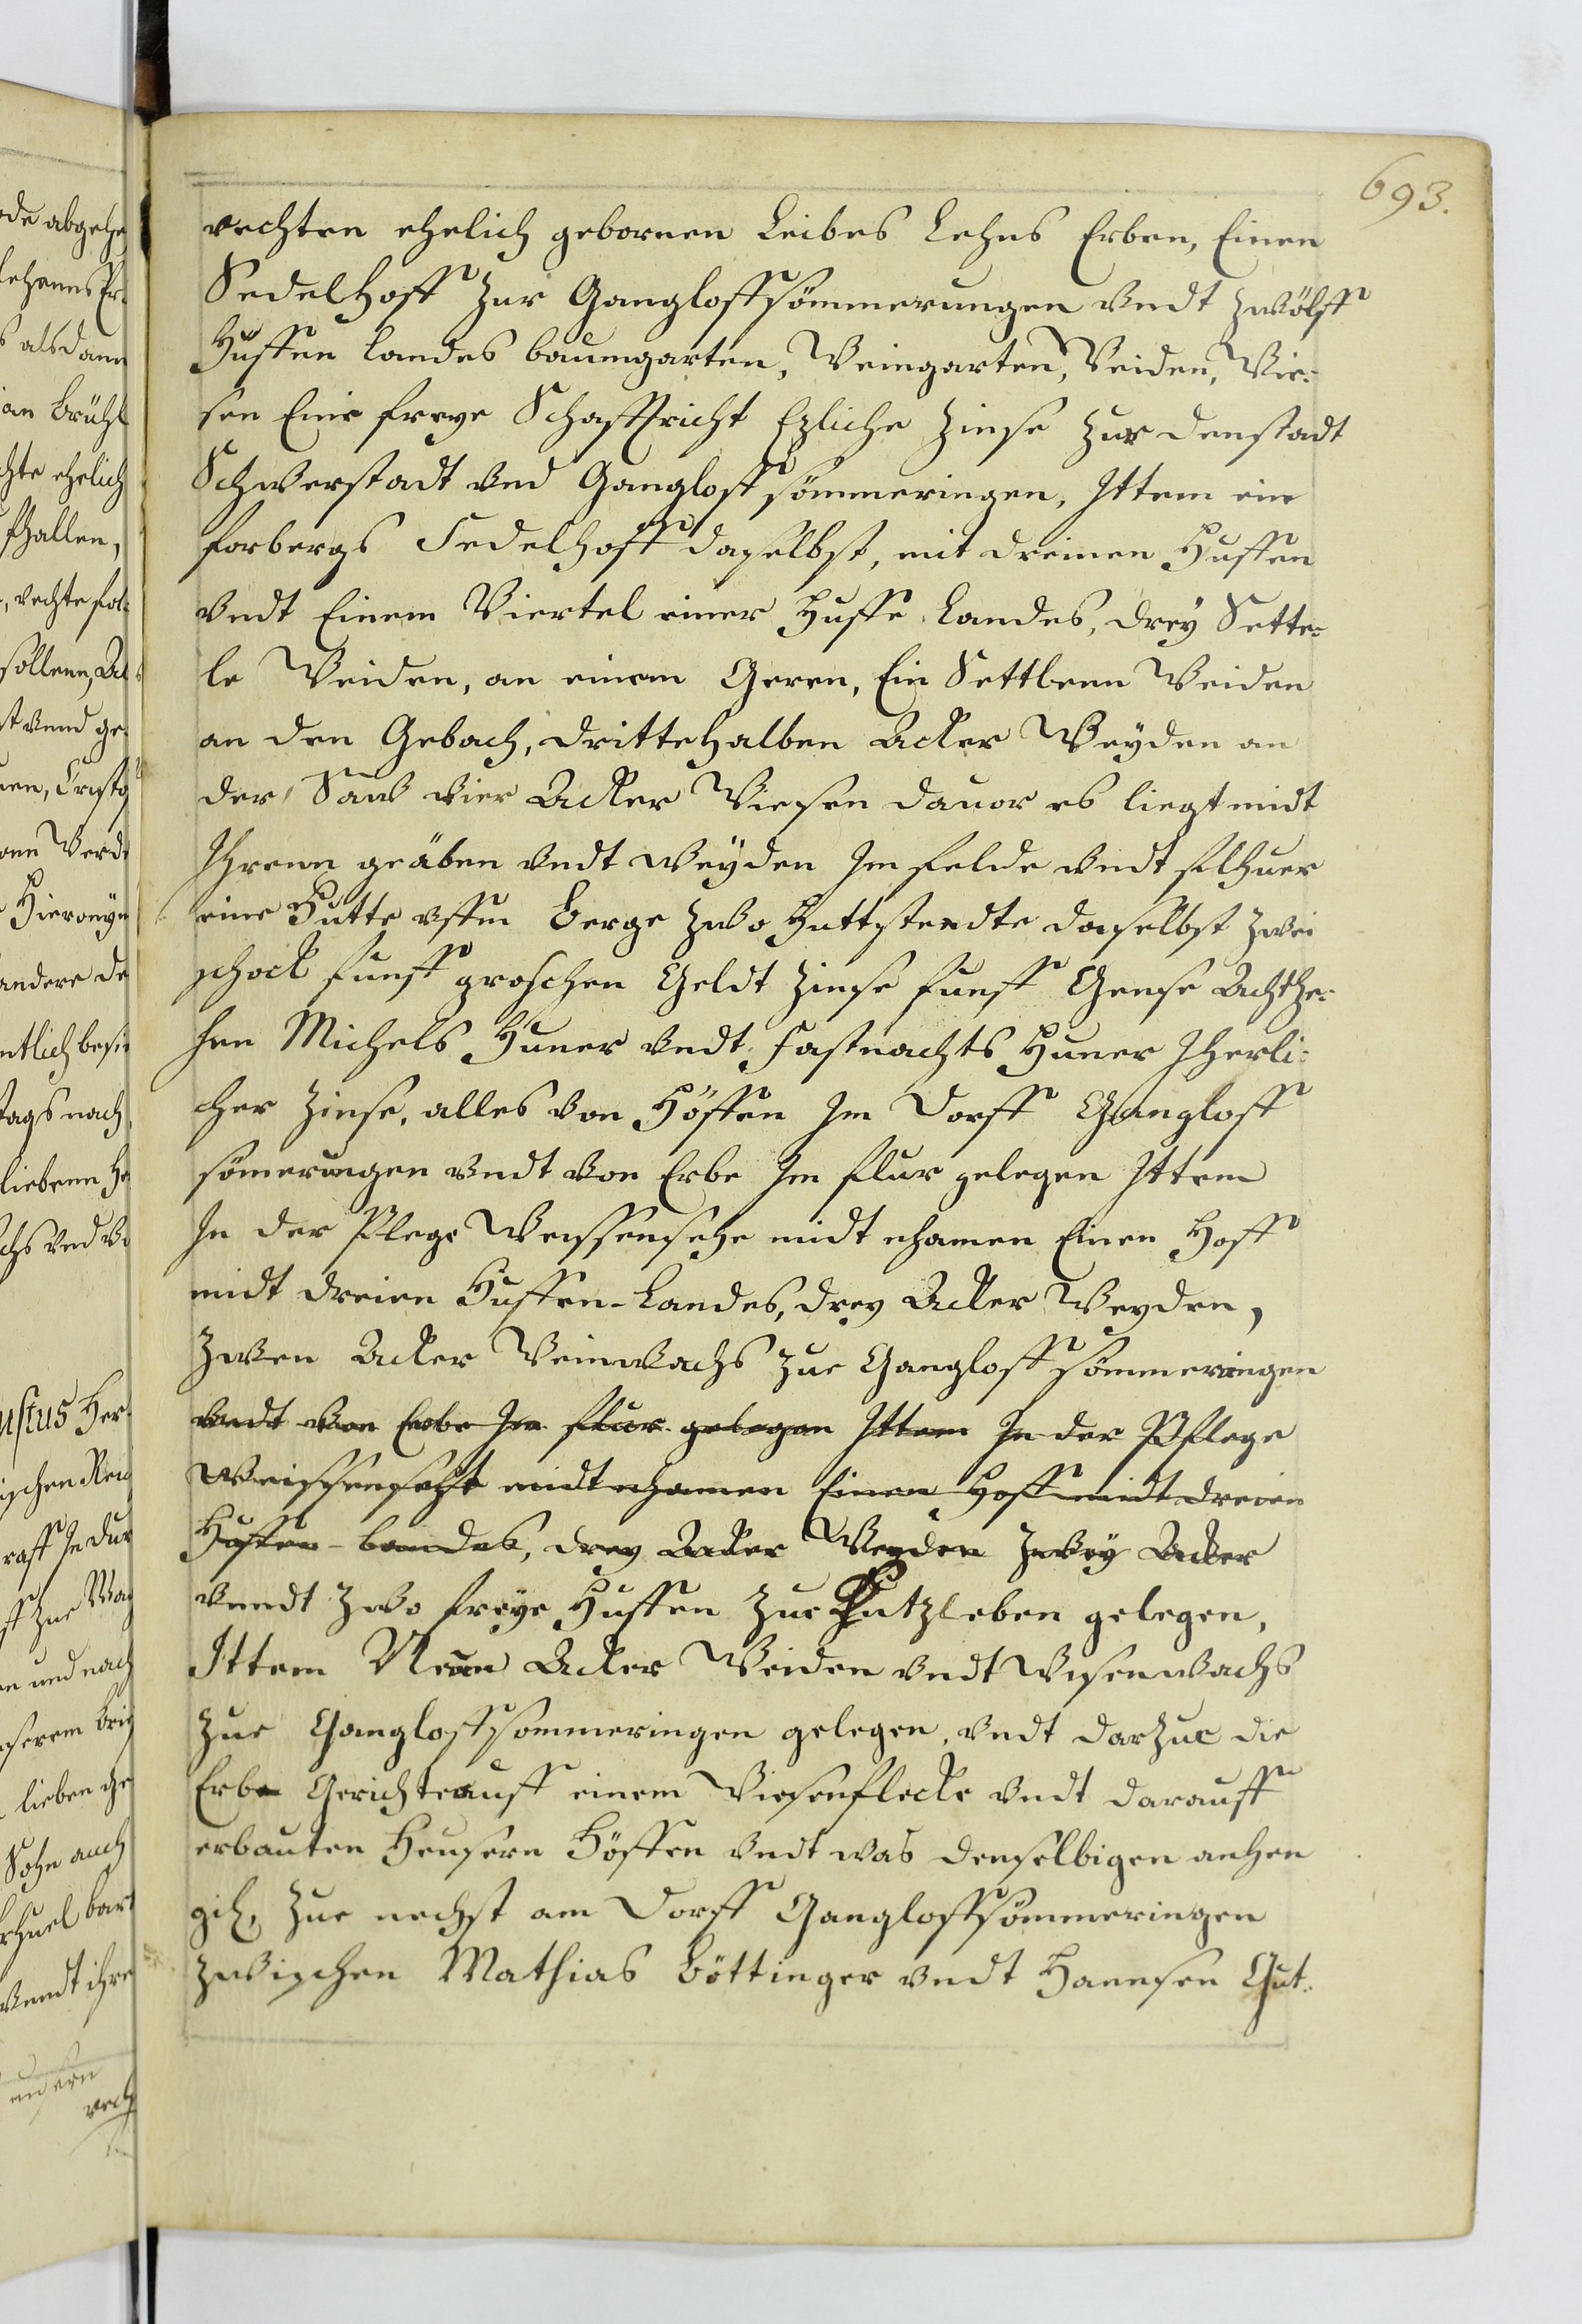 693.
rechten ehelich gebornen Leibes Lehns Erben, Einen
Sedelhoff zur Gangloffsömmerungen vndt zwölff
Huffen Landes baumgarten, Weingarten, Weiden, Wie¬
sen Eine freye Schafftricht Ezliche Zinse zur denstadt
Schwerstadt vnd Gangloffsömmeringen, Ittem ein
forbergs Sedelhoff daselbst, mit dreinen Huffen
vndt Einem Viertel einer Huffe Landes, drey Sette¬
le Weiden, an einem Geren, Ein Settlenn Weiden
an den Gebach, drittehalben Acker Weyden an
der Saw vier Acker Wiesen dauor es liegt midt
Ihrenn gräben vndt weyden Im felde vndt flhuer
eine Hutte vffm berge zwo Huttstendte daselbst zwei
schock funff groschen Geldt Zinse funff Gense Achtze¬
hen Michels Huner vndt Fastnachts Huner Iherli¬
cher Zinse, alles von Höffen Im Dorff Gangloff
sömerungen vndt von Erbe Im flur gelegen Ittem
In der Plege Weissensehe midt nhamen Einen Hoff
midt dreien Huffen-Landes, drey Acker Weyden,
Zwen Acker Weinwachs zue Gangloffsömmeringen
vndt von Erbe Im flur gelegen Ittem In der Pflege
Weissensehe midt nhamen Einen Hoff midt dreien
Huffen-Landes, drey Acker Weyden Zwey Acker
vnndt zwo freye Huffen zue Kutzleben gelegen,
Ittem Neun Acker Weiden vndt Wisenwachs
zue Gangloffsommeringen gelegen, vndt darzue die
Erbe Gerichte auff einem Wiesenflecke vndt darauff
erbauten Heusern Höffen vndt was denselbigen anhen
gih, zue nechst am Dorff Gangloffsömmeringen
zwischen Mathias Böttinger vndt Hannsen Gut¬